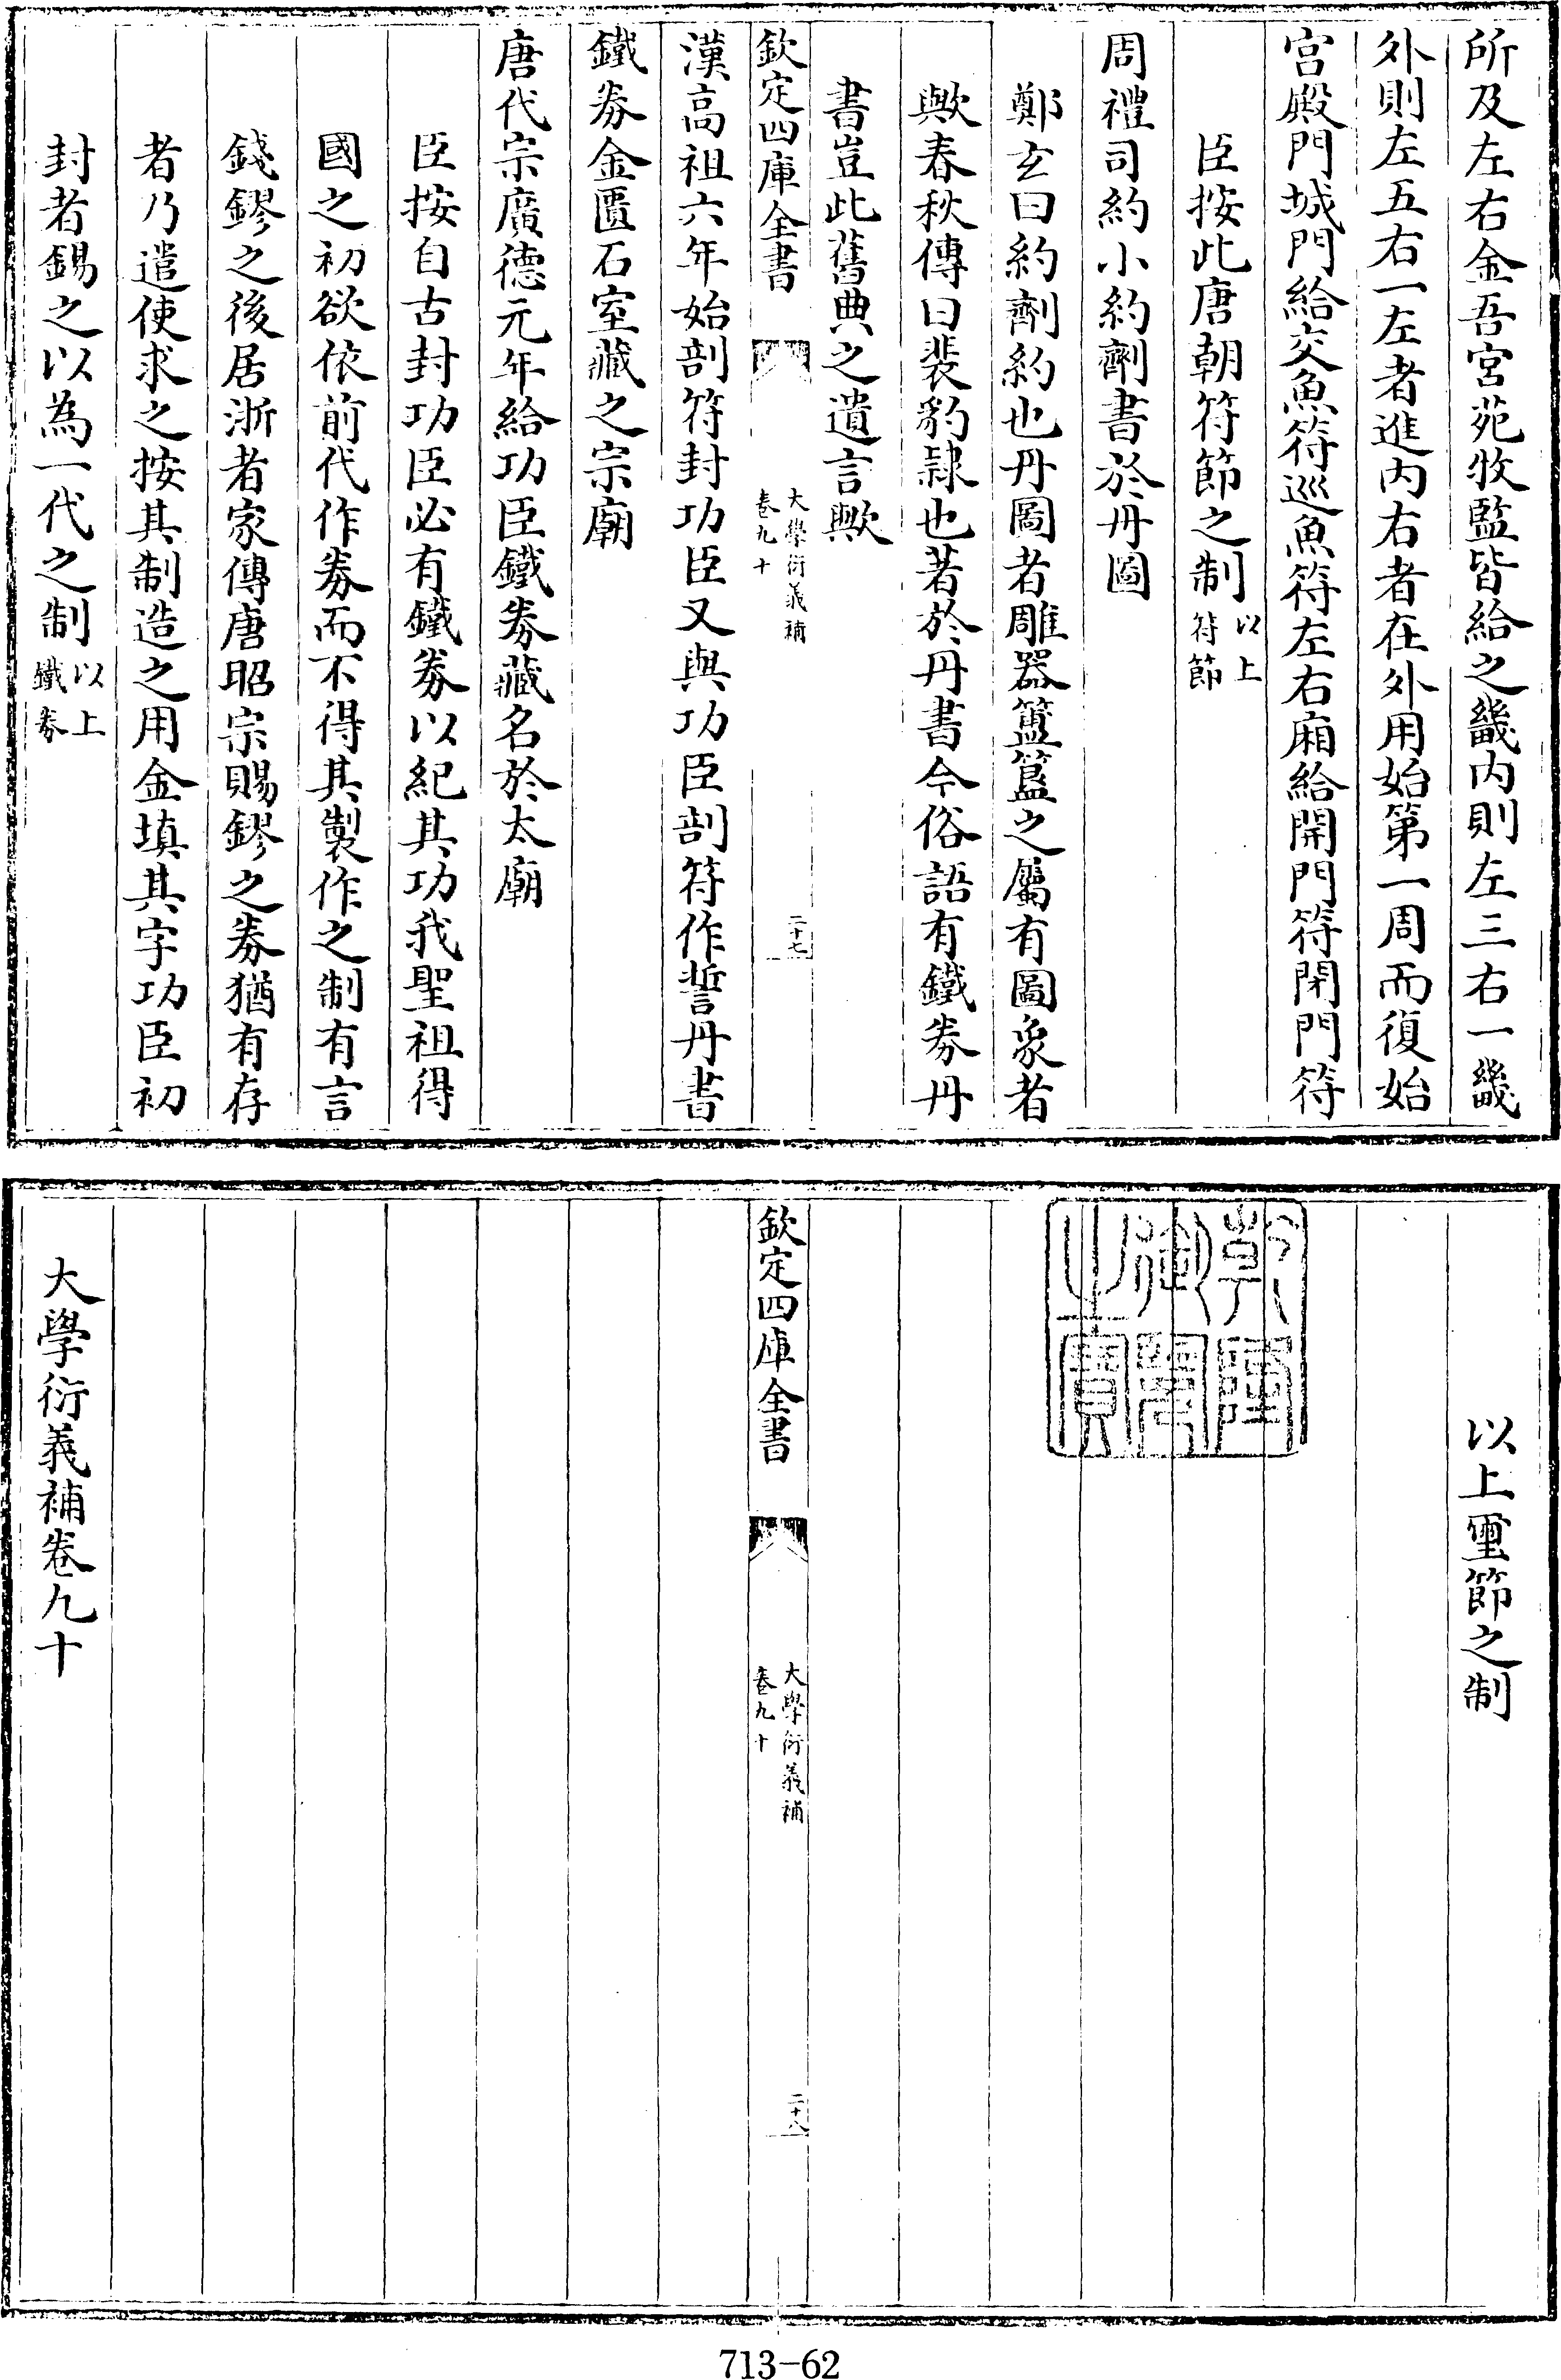 所及左右金吾宮苑牧監皆給之畿内則左三右一畿
外則左五右一左者進内右者在外用始第一周而復始
宫殿門城門給交魚符巡魚符左右廂給開門符閉門符
臣按此唐朝符節之制以上符節
周禮司約小約劑書於丹圖
鄭玄曰約劑約也丹圖者雕器簠簋之屬有圖象者
歟春秋傳曰裴豹隷也著於丹書今俗語有鐵券丹
書豈此舊典之遺言歟
欽定四庫全書
大學衍義補
卷九十
二十七
漢高祖六年始剖符封功臣又與功臣剖符作誓丹書
鐵券金匱石室藏之宗廟
唐代宗廣德元年給功臣鐵券藏名於太廟
臣按自古封功臣必有鐵券以紀其功我聖祖得
國之初欲依前代作券而不得其製作之制有言
錢鏐之後居浙者家傳唐昭宗賜鏐之券猶有存
者乃遣使求之按其制造之用金填其字功臣初
封者錫之以為一代之制以上鐵券
以上璽節之制
乾隆御覽之寶
欽定四庫全書
大學衍義補
卷九十
二十八
大學衍義補卷九十
713-62